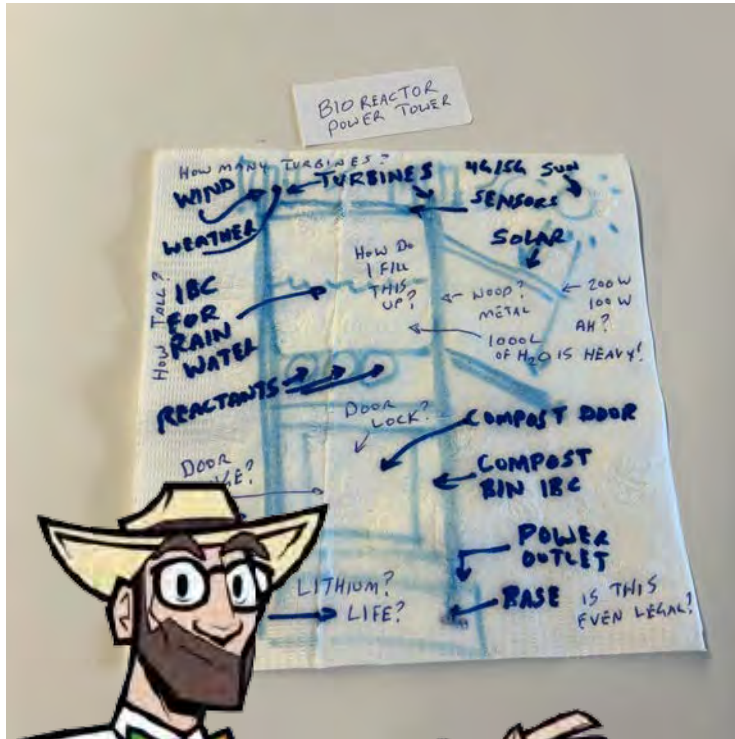 BIO REACTOR
POWER TOWER
HOW MANY TURBINES?
WIND
TURBINES
4G/5G SUN
SENSORS
WEATHER
SOLAR
HOW TALL?
IBC
FOR
RAIN
WATER
HOW DO
I FILL
THIS
UP?
WOOD?
METAL
200W
100W
AH?
1000L
OF H2O IS HEAVY!
REACTANTS
DOOR
LOCK?
COMPOST DOOR
DOOR
COMPOST
BIN IBC
POWER
OUTLET
LITHIUM?
LIFE?
BASE
IS THIS
EVEN LEGAL?